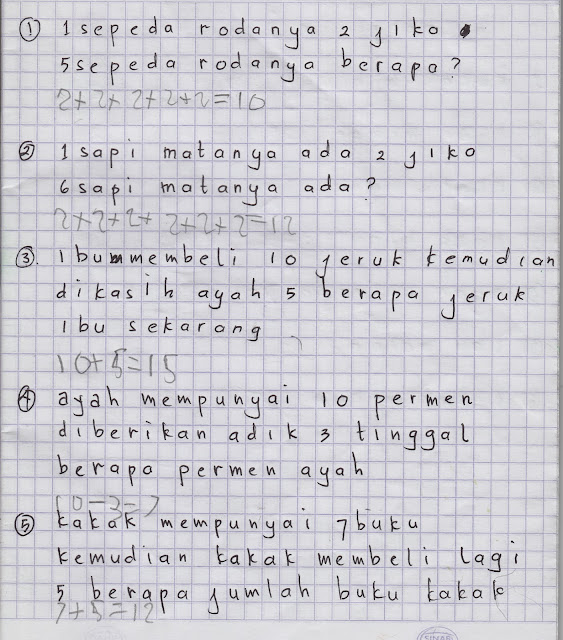 ① 1 sepeda rodanya 2 jiko
5 sepeda rodanya berapa?
2+2+2+2+2=10
② 1 sapi matanya ada 2 jiko
6 sapi matanya ada?
2+2+2+2+2+2=12
③. Ibu membeli 10 jeruk kemudian
dikasih ayah 5 berapa jeruk
Ibu sekarang
10+5=15
④ ayah mempunyai 10 permen
diberikan adik 3 tinggal
berapa permen ayah
10-3=7
⑤ kakak mempunyai 7 buku
kemudian kakak membeli lagi
5 berapa jumlah buku kakak
7+5=12
SINAR